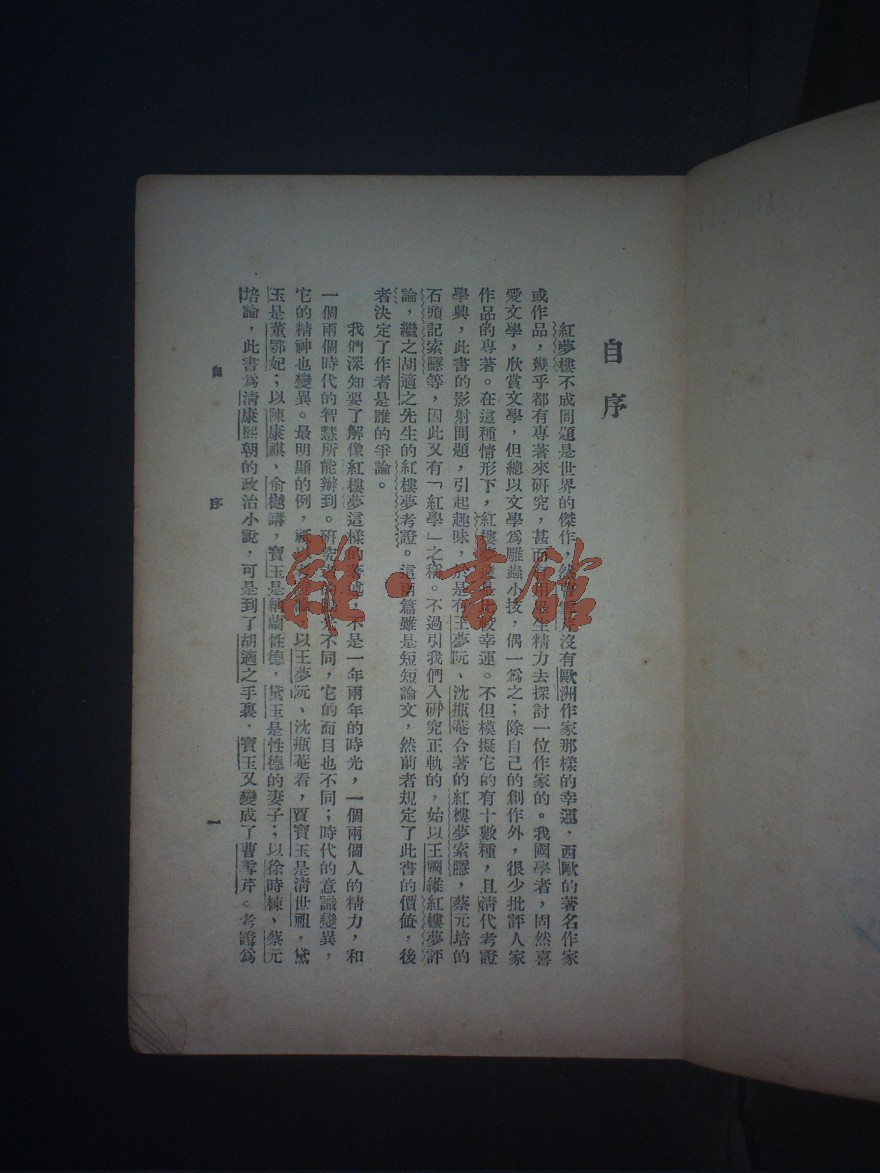 自序
紅夢樓不成問題是世界的傑作，然沒有歐洲作家那樣的幸運，西歐的著名作家
或作品，幾乎都有專著來研究，甚而生精力去探討一位作家的。我國學者，固然喜
愛文學，欣賞文學，但總以文學爲雕蟲小技，偶一爲之；除自己的創作外，很少批評人家
作品的專著。在這種情形下，紅樓幸運。不但模擬它的有十數種，且清代考證
學興，此書的影射問題，引起趣味，於是有王夢阮、沈瓶菴合著的紅樓夢索隱，蔡元培的
石頭記索隱等，因此又有「紅學」之稱。不過引我們入研究正軌的，始以王國維紅樓夢評
論，繼之胡適之先生的紅樓夢考證。這兩篇雖是短短論文，然前者規定了此書的價値，後
者決定了作者是誰的爭論。
我們深知要了解像紅樓夢這樣的著述，不是一年兩年的時光，一個兩個人的精力，和
一個兩個時代的智慧所能辦到。研究者的不同，它的面目也不同；時代的意識變異，
它的精神也變異。最明顯的例，祇以王夢阮、沈瓶菴看，賈寶玉是淸世祖，黛
玉是董鄂妃；以陳康祺、俞樾講，寶玉是納蘭性德，黛玉是性德的妻子；以徐時棟、蔡元
培論，此書爲淸康熙朝的政治小說，可是到了胡適之手裏，寶玉又變成了曹雪芹。考證爲
自序
一
雜·書館